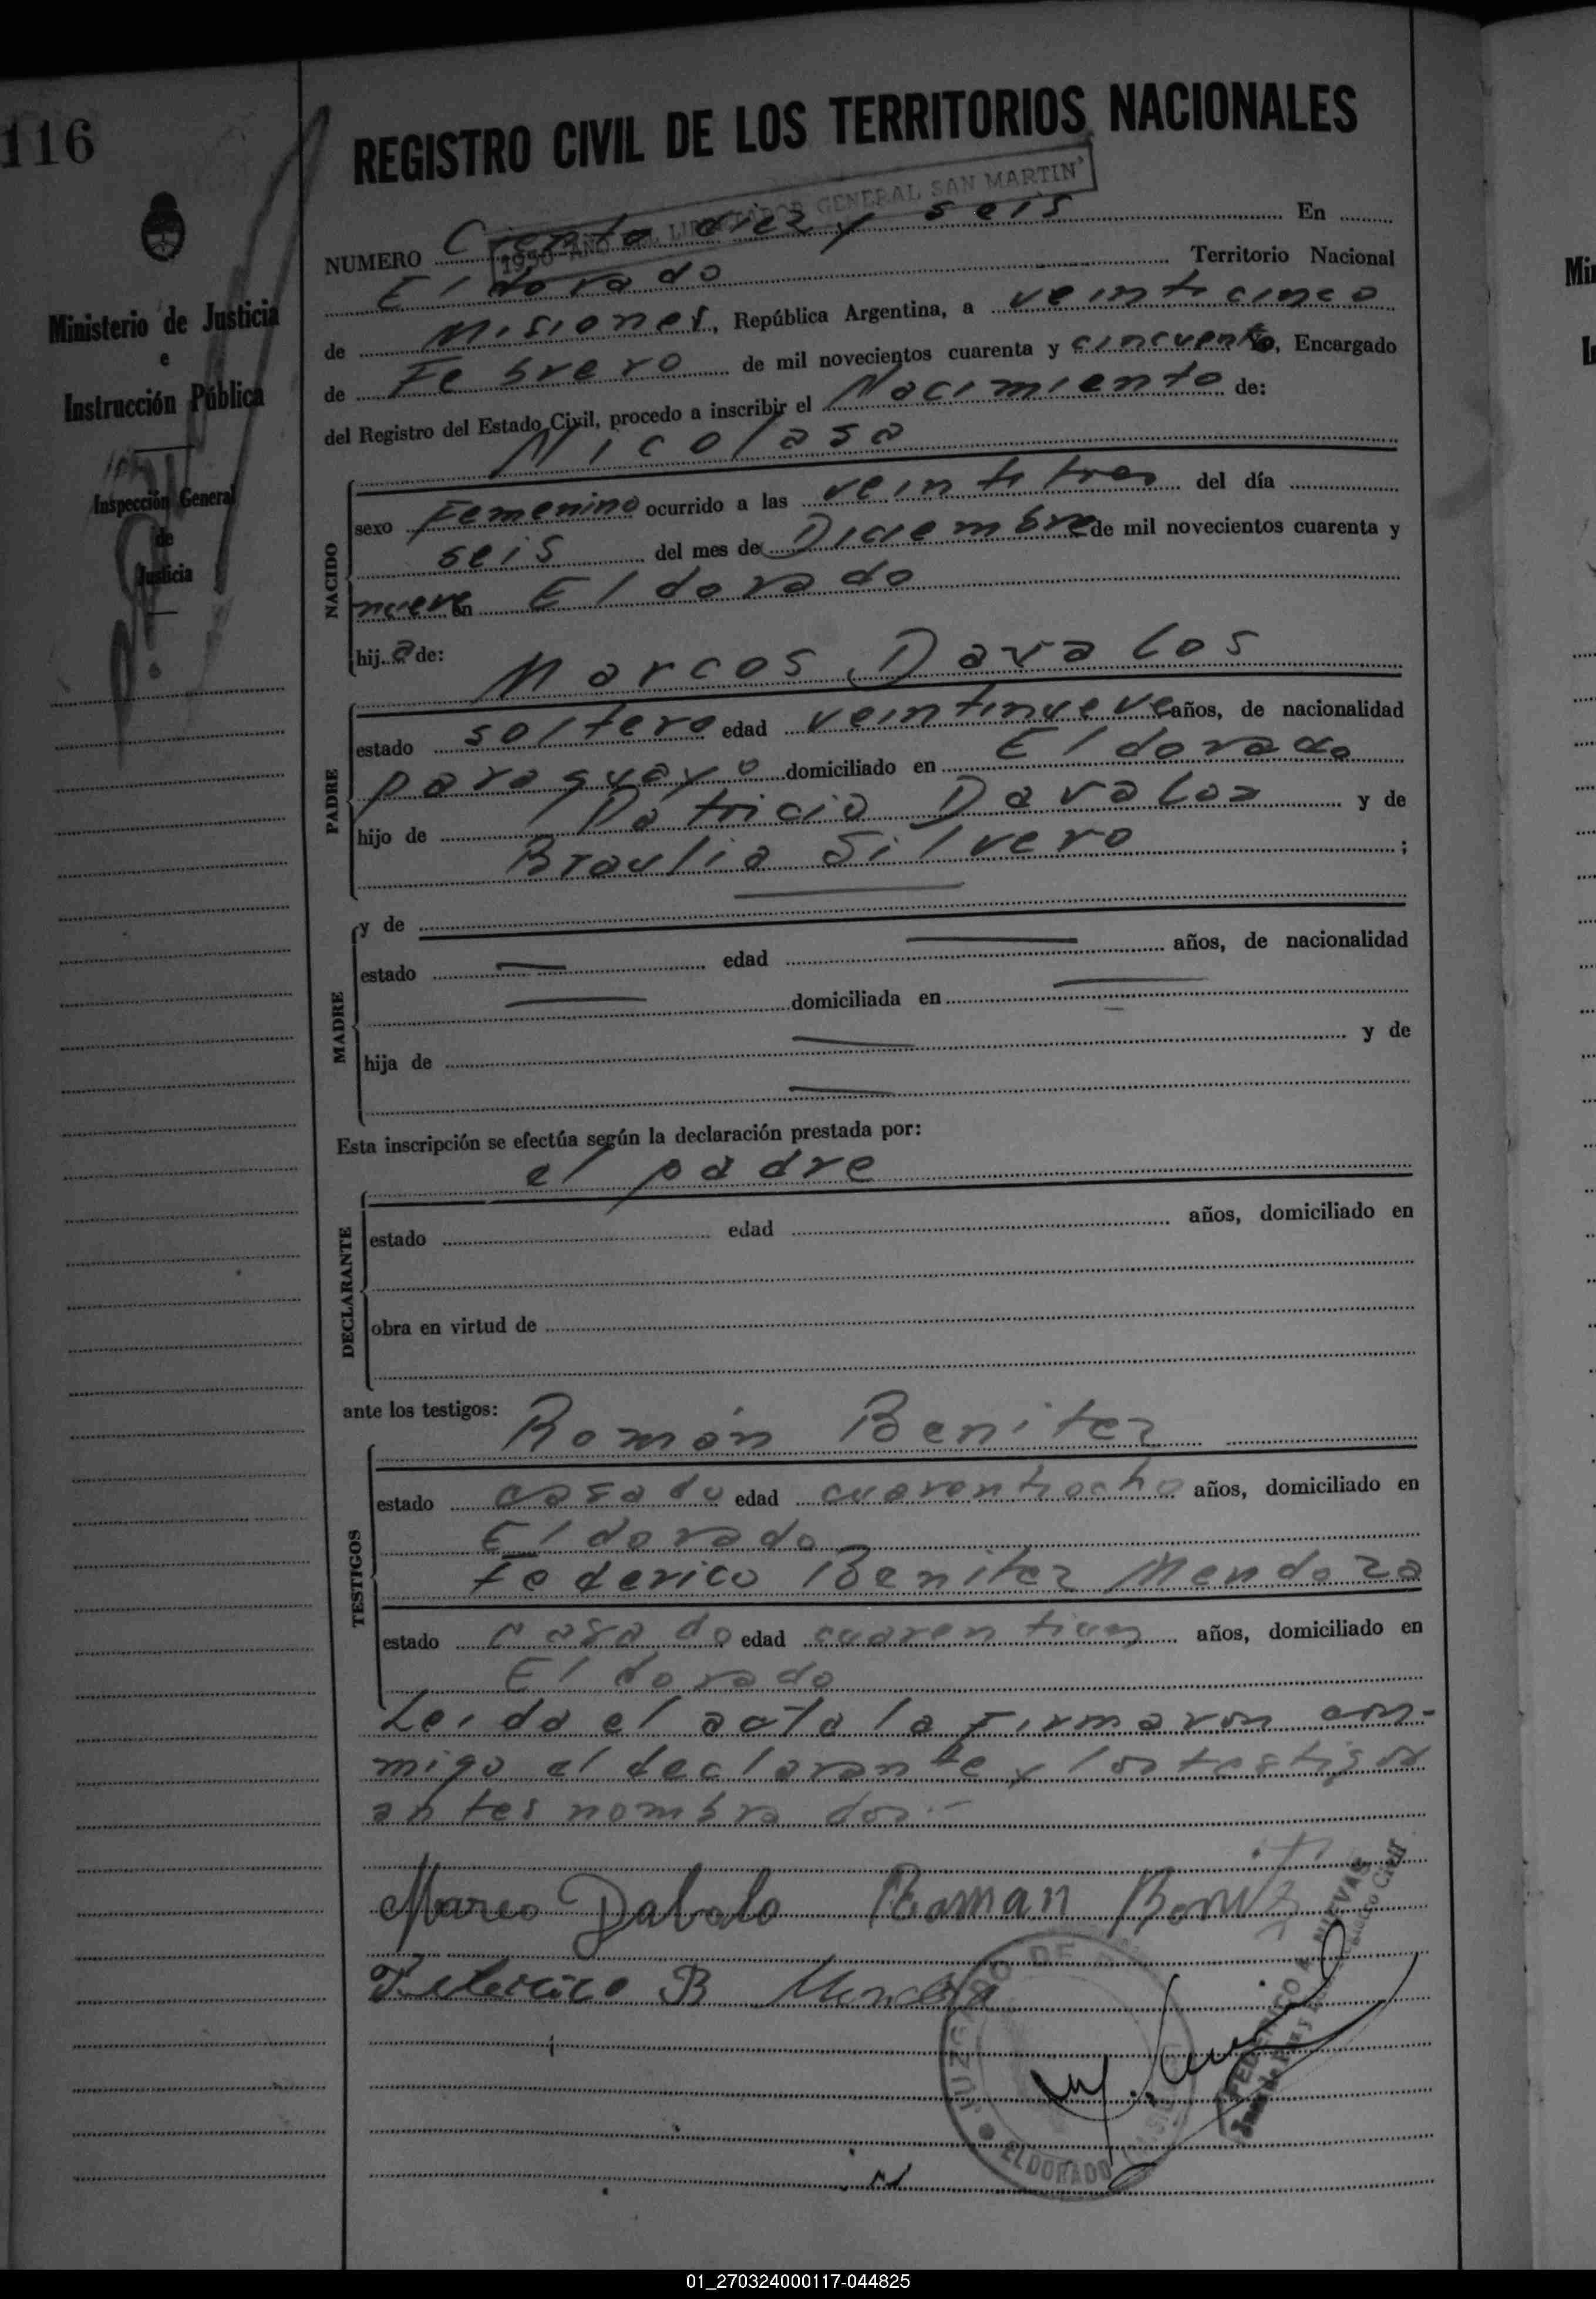 116
REGISTRO CIVIL DE LOS TERRITORIOS NACIONALES
1950 - AÑO DEL LIBERTADOR GENERAL SAN MARTIN
NUMERO Ciento diez y seis En
Eldorado Territorio Nacional
de Misiones, República Argentina, a veinticinco
de Febrero de mil novecientos cuarenta y cincuenta, Encargado
del Registro del Estado Civil, procedo a inscribir el Nacimiento de:
Nicolasa
Ministerio de Justicia
e
Instrucción Pública
Inspección General
de
Justicia
NACIDO
sexo Femenino ocurrido a las veintitres del día
seis del mes de Diciembre de mil novecientos cuarenta y
nueve en Eldorado
hija de: Marcos Davalos
PADRE
estado soltero edad veintinueve años, de nacionalidad
paraguayo domiciliado en Eldorado
hijo de Patricio Davalos y de
Braulia Silvero ;
MADRE
y de
estado edad años, de nacionalidad
domiciliada en
hija de y de
Esta inscripción se efectúa según la declaración prestada por:
el padre
DECLARANTE
estado edad años, domiciliado en
obra en virtud de
ante los testigos: Román Benitez
TESTIGOS
estado casado edad cuarentiocho años, domiciliado en
Eldorado
Federico Benitez Mendoza
estado casado edad años, domiciliado en
Eldorado
Leida el acta la firmaron con-
migo el declarante y los testigos
antes nombrados.-
Marco Dabalo Roman Benitz
Federico B Mendoza
JUZGADO DE
ELDORADO
FEDERICO NUEVAS
Juez de Paz
01_270324000117-044825